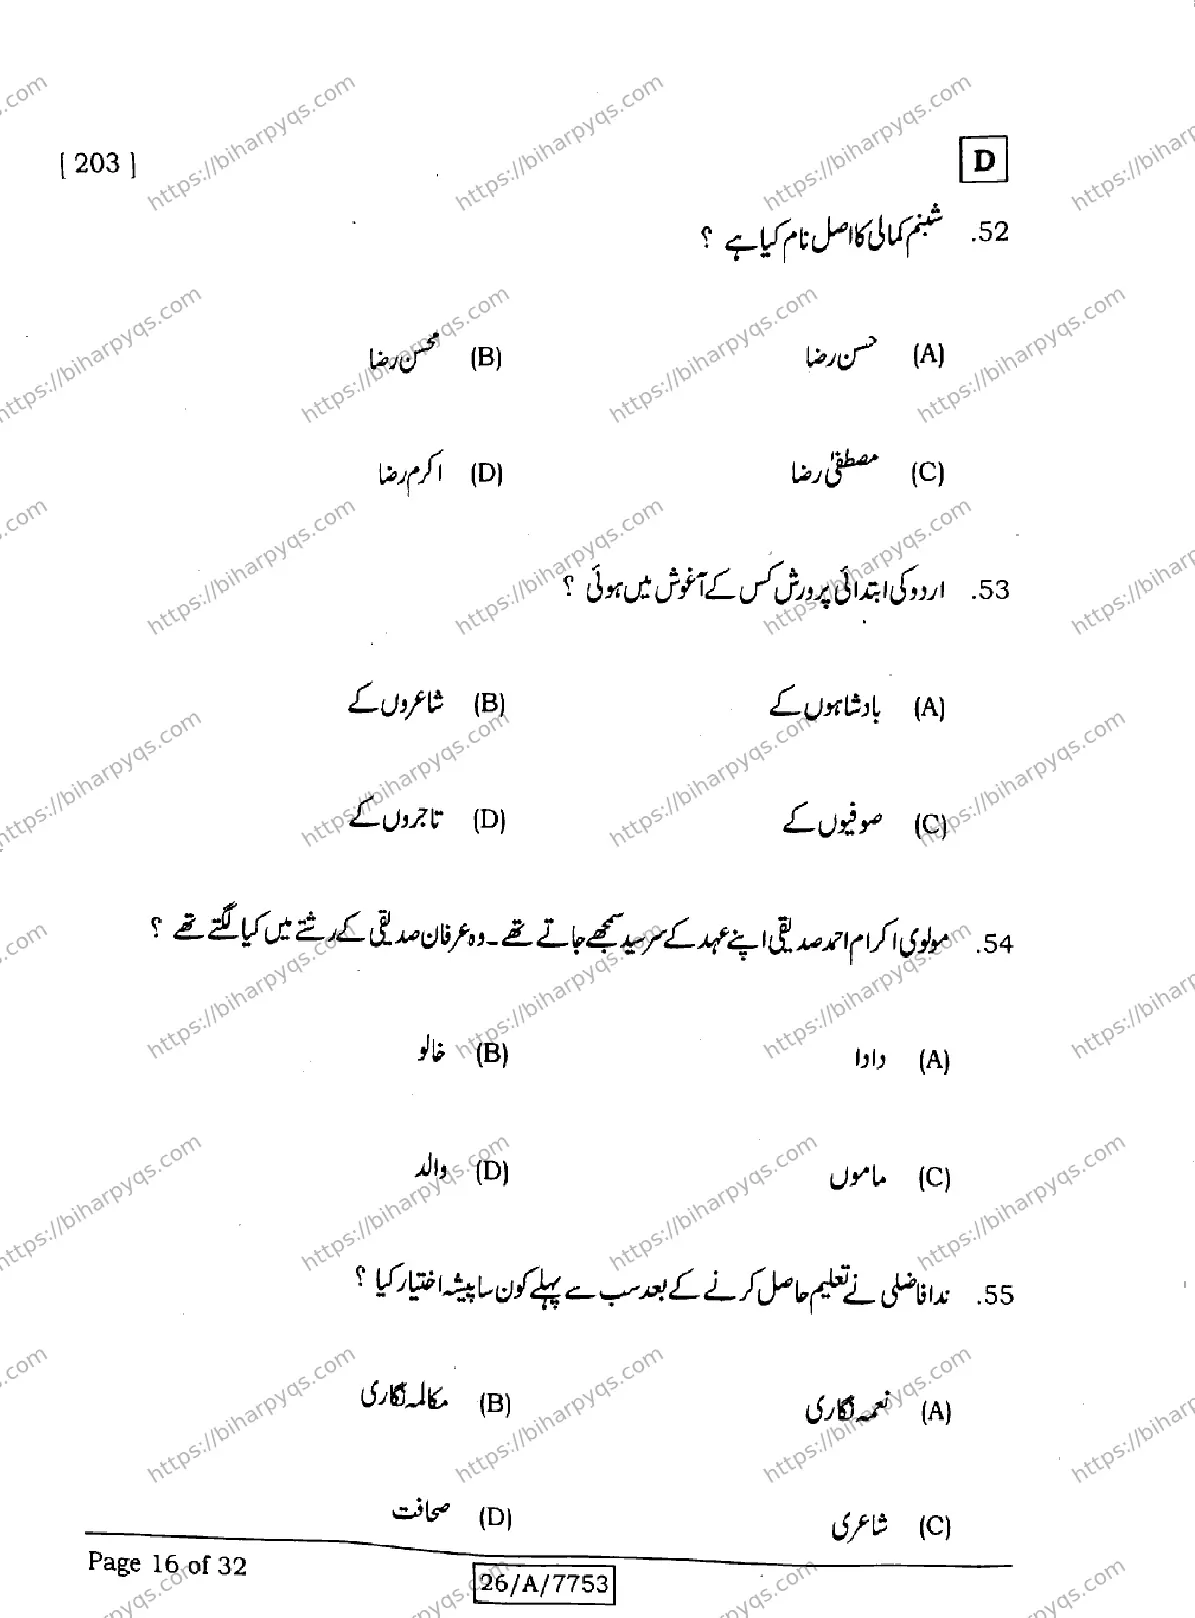 [ 203 ]
D
52. شبنم کمالی کا اصل نام کیا ہے ؟
(A) حسن رضا (B) محسن رضا
(C) مصطفیٰ رضا (D) اکرم رضا
53. اردو کی ابتدائی پرورش کس کے آغوش میں ہوئی ؟
(A) بادشاہوں کے (B) شاعروں کے
(C) صوفیوں کے (D) تاجروں کے
54. مولوی اکرام احمد صدیقی اپنے عہد کے سرسید سمجھے جاتے تھے۔ وہ عرفان صدیقی کے رشتے میں کیا لگتے تھے ؟
(A) دادا (B) خالو
(C) ماموں (D) والد
55. ندا فاضلی نے تعلیم حاصل کرنے کے بعد سب سے پہلے کون سا پیشہ اختیار کیا ؟
(A) نغمہ نگاری (B) مکالمہ نگاری
(C) شاعری (D) صحافت
Page 16 of 32
26/A/7753
https://biharpyqs.com